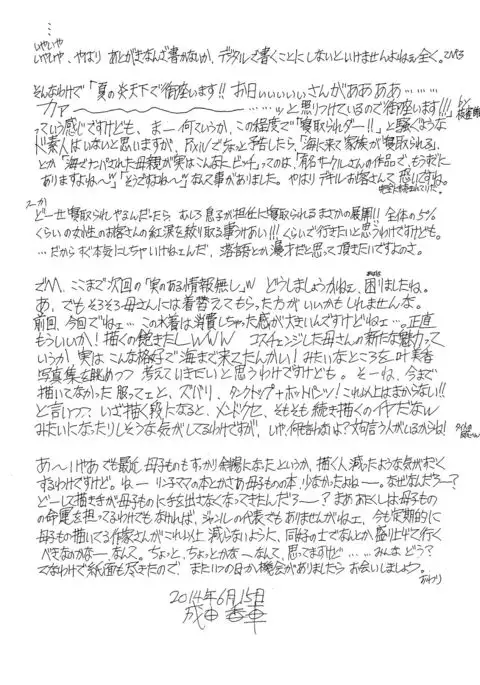 ……
いやいや
いやいや、やはり あとがきなんざ書かないか、デジタルで書くことにしないといけませんよねェ全く。
そんなわけで「夏の炎天下で御座います!! お日ぃぃぃぃぃさんがああああ……
カァー〜〜〜……ッと照りつけているので御座います!!!」
っていう感じですけども、まー何ていうか、この程度で「寝取られダー!!」と騒ぐような
ド素人はいないと思いますが、 したら、「海に来て家族が寝取られる」
とか「海でナンパされた母親が実はこんなにビッチ」ってのは、「有名サークルさんの作品で、もうすでに
ありますよね〜w」「そうですね〜w」なんて事がありました。やはりデキルお客さんって恐いですね。
どーせ寝取られやるんだったら むしろ息子が担任に寝取られるまさかの展開!! 全体の5%
くらいの女性のお客さんの紅涙を絞り取る事もいとわない!!! くらいで行きたいと思うわけですけども。
…だからすぐ本気にしちゃいけねェんだ、落語とか漫才だと思って頂きたいですよのさ。
でハ、ここまで次回の「実のある情報無し」w どうしましょうかねェ、困りましたね。
あ、でもそろそろ母さんには着替えてもらった方がいいかもしれませんな。
前回、今回でねェ…この水着は消費しちゃった感が大きいんですけどねェ…。正直
もういいか!描くの飽きたしwww コスチェンジした母さんの新たな魅力って
いうか、実は こんな格好で海まで来てたんかい!みたいなところを 叶美香
写真集を眺めつつ 考えていきたいと思うわけですけども。そーね、今まで
描いていなかった服ってェと、ズバリ、タンクトップ+ホットパンツ!これ以上はまからない!!
と言いつつ、いざ描く段になると、メンドクセ、そもそも続き描くのイヤだなw
みたいになったりしそうな気がしてるわけですが、いや、何も言わないよ?文句言う人がいるからね!
あ〜けやあでも最近 母子ものもすっかり というか、描く人減ったような気がおそく
するわけですけど。ねー リン子ママの本とかさあ母子もの本、少なかったよねー。なぜなんだろー?
どーして描き手が母子ものに手を出さなくなってきたんだろー?まああたくしは母子もの
の命運を担ってるわけでもなければ、ジャンルの代表でもありませんがねェ、今も定期的に
母子もの描いてる作家さんがこれ以上減らないように、同好の士でなんとか盛り上げて行く
べきなのかなー、なんて。ちょっと、ちょっとかなーなんて、思ってますけど……みんなはどう?
てなわけで紙面も尽きたので、またいつの日か機会がありましたら お会いしましょう。
おわり
2014年6月15日
成田香車